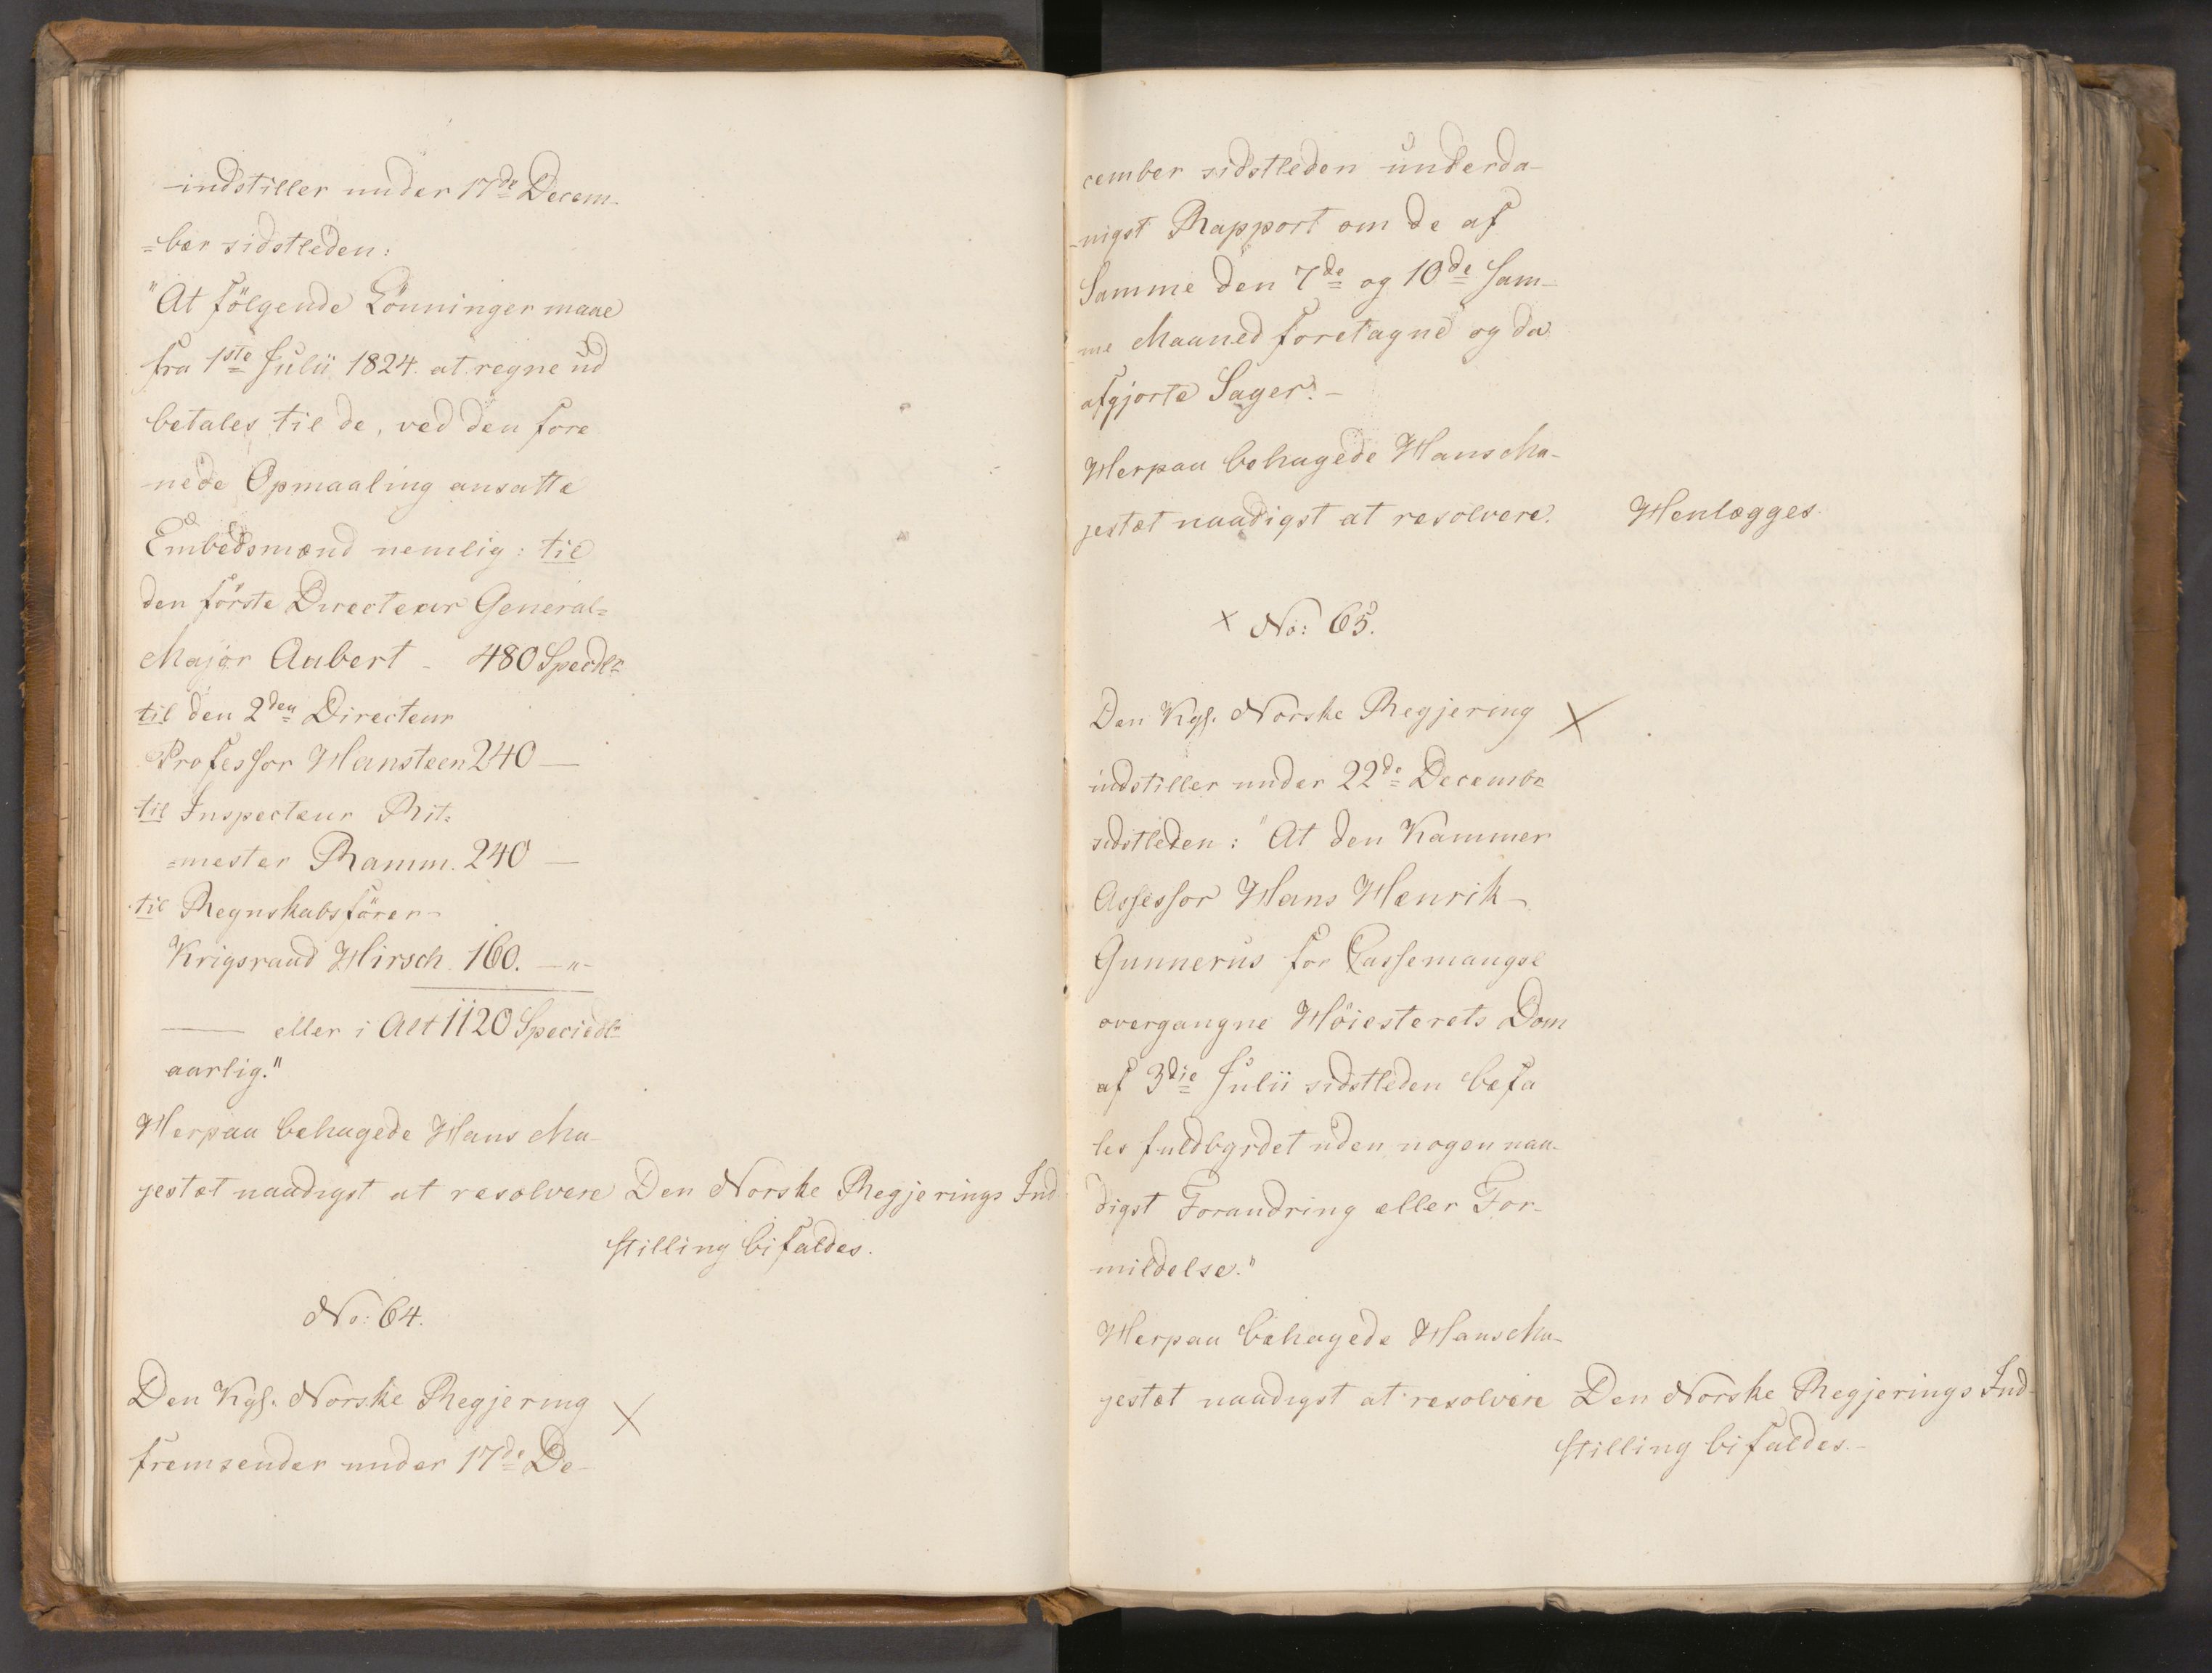 -indstiller under 17de Decem-
=ber sidstleden:
"At fölgende Lönninger maae
fra 1ste Julii 1824 at regne ud
betales til de, ved den fore
nede Opmaaling ansatte
Embedsmænd nemlig: til
den förste Directeur General=
Major Aubert - 480 Specdlr
til den 2den Directeur
Professor Hansteen 240 —
til Inspecteur Rit=
=mester Ramm. 240 —
til Regnskabsförer
Krigsraad Hirsch. 160. —"—
—— eller i Alt 1120 Speciedlr
aarlig."
Herpaa behagede Hans Ma-
jestæt naadigst at resolvere Den Norske Regjerings Ind
stilling bifaldes.
No: 64.
Den Kgl. Norske Regjering X
fremsender under 17de De-
cember sidstleden underda-
-nigst Rapport om de af
Samme den 7de og 10de Sam-
me Maaned foretagne og da
afgjorte Sager. -
Herpaa behagede Hans Ma-
jestæt naadigst at resolvere. Henlægges.
x No: 65.
Den Kgl. Norske Regjering X
indstiller under 22de Decembr
sidstleden: "At den Kammer
Assessor Hans Henrik
Gunnerus for Cassemangel
overgangne Höiesterets Dom
af 3die Julii sidstleden befa
les fuldbyrdet uden nogen naa-
digst Forandring eller For-
mildelse."
Herpaa behagede Hans Ma-
jestæt naadigst at resolvere Den Norske Regjerings Ind-
stilling bifaldes.-